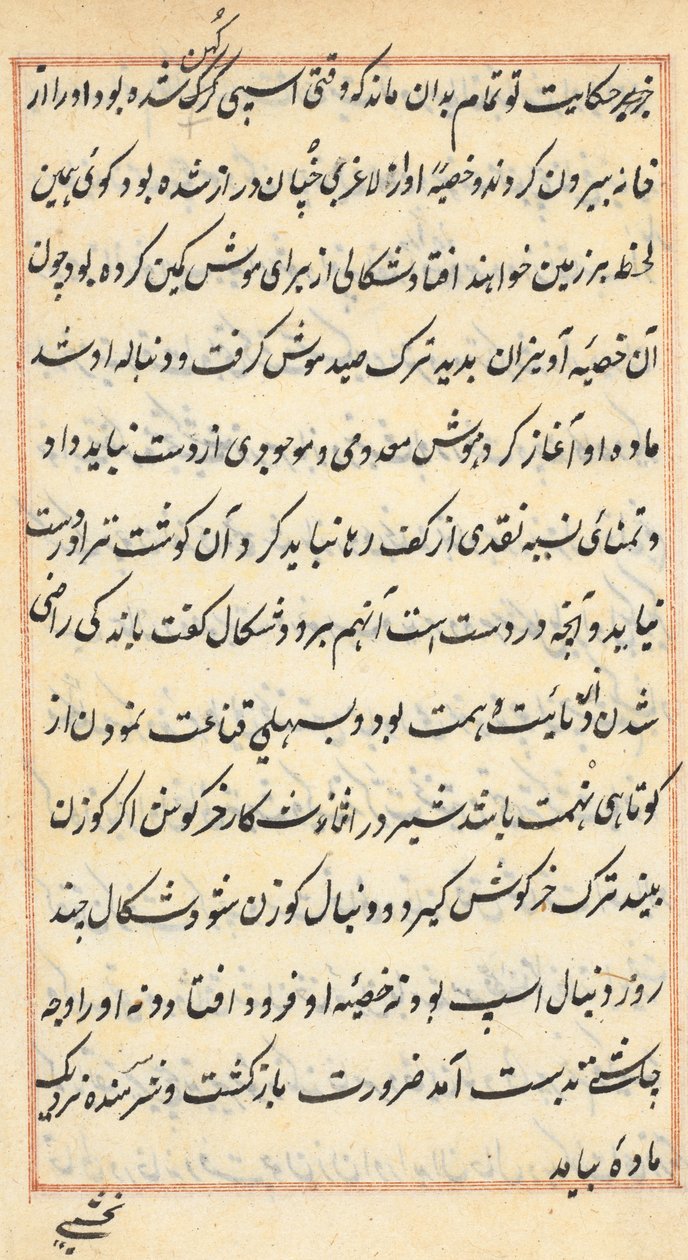 کهن
حکایت تو تمام بدان ماند که وقتی اسپی کرک شده بود او را از
خانه بیرون کردند و خصیهٔ او از لاغری چنان دراز شده بود کوئی همین
لحظه بر زمین خواهند افتاد شکالی از برای موش کمین کرده بود چون
آن خصیهٔ آویزان بدید ترک صید موش کرفت و دنباله او شد
ماده او آغاز کرد بموش معدومی و موجودی از دست نباید داد
و تمنائی نسیه نقدی از کف رها نباید کرد آن کوشت ترا در دست
نیاید و آنچه در دست است آنهم برود شکال کفت باندکی راضی
شدن از دنائیت همت بود و بسهلی قناعت نمودن از
کوتاهی نهمت باشد شیر در اثناء شکار خرکوش اکر کوزن
بیند ترک خرکوش کیرد و دنبال کوزن شود شکال چند
روز دنبال اسپ بود نه خصیهٔ او فرود افتاد و نه او را وجه
چاشتی بدست آمد ضرورت بازکشت و شرمنده نزدیک
مادهٔ بیاید
نخشبی